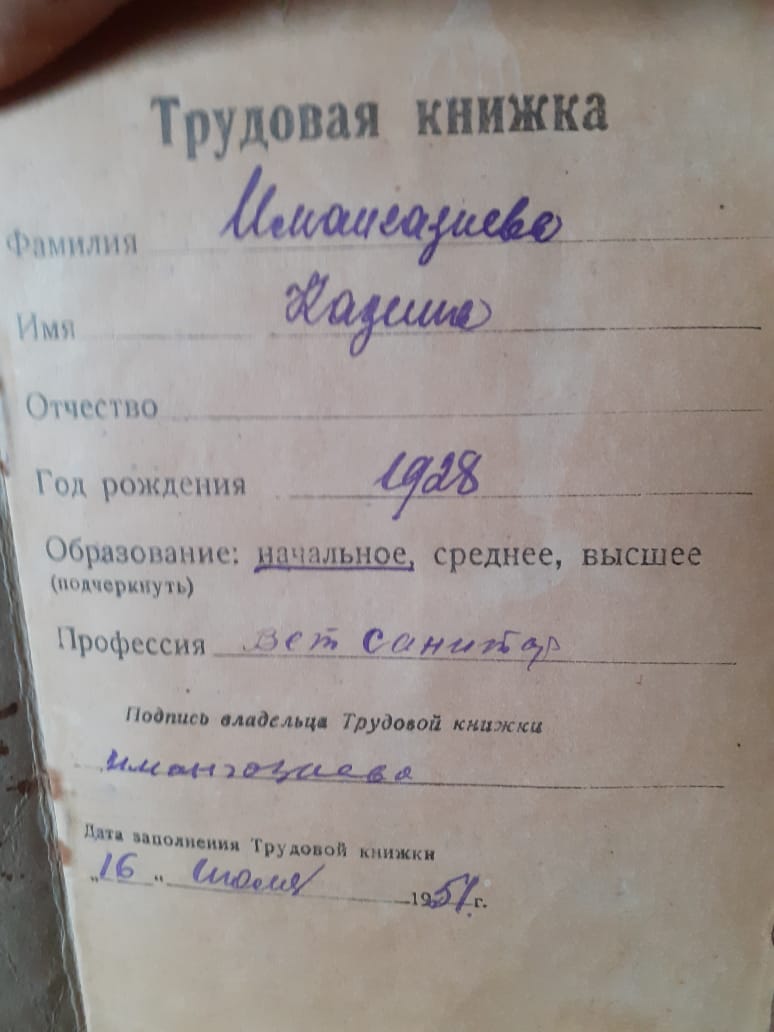 Трудовая книжка
Фамилия Имангазиева
Имя Казина
Отчество
Год рождения 1928
Образование: начальное, среднее, высшее
(подчеркнуть)
Профессия вет санитар
Подпись владельца Трудовой книжки
имангозиева
Дата заполнения Трудовой книжки
„16 “ июля 1951 г.